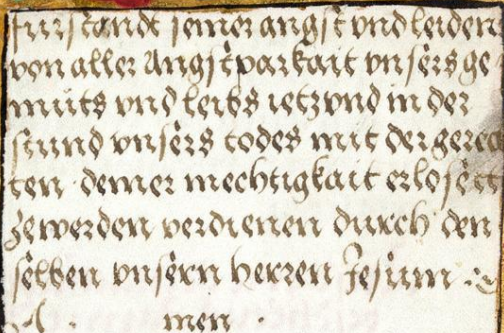 furstandt seiner angst vnd leiden
von aller Angstparkait vnsers ge
müts vnd leibs ietzund in der
stund vnsers todes mit der gerech
ten deiner mechtigkait erlosett
zewerden verdienen durch den
selben vnsern herren Jesum
men